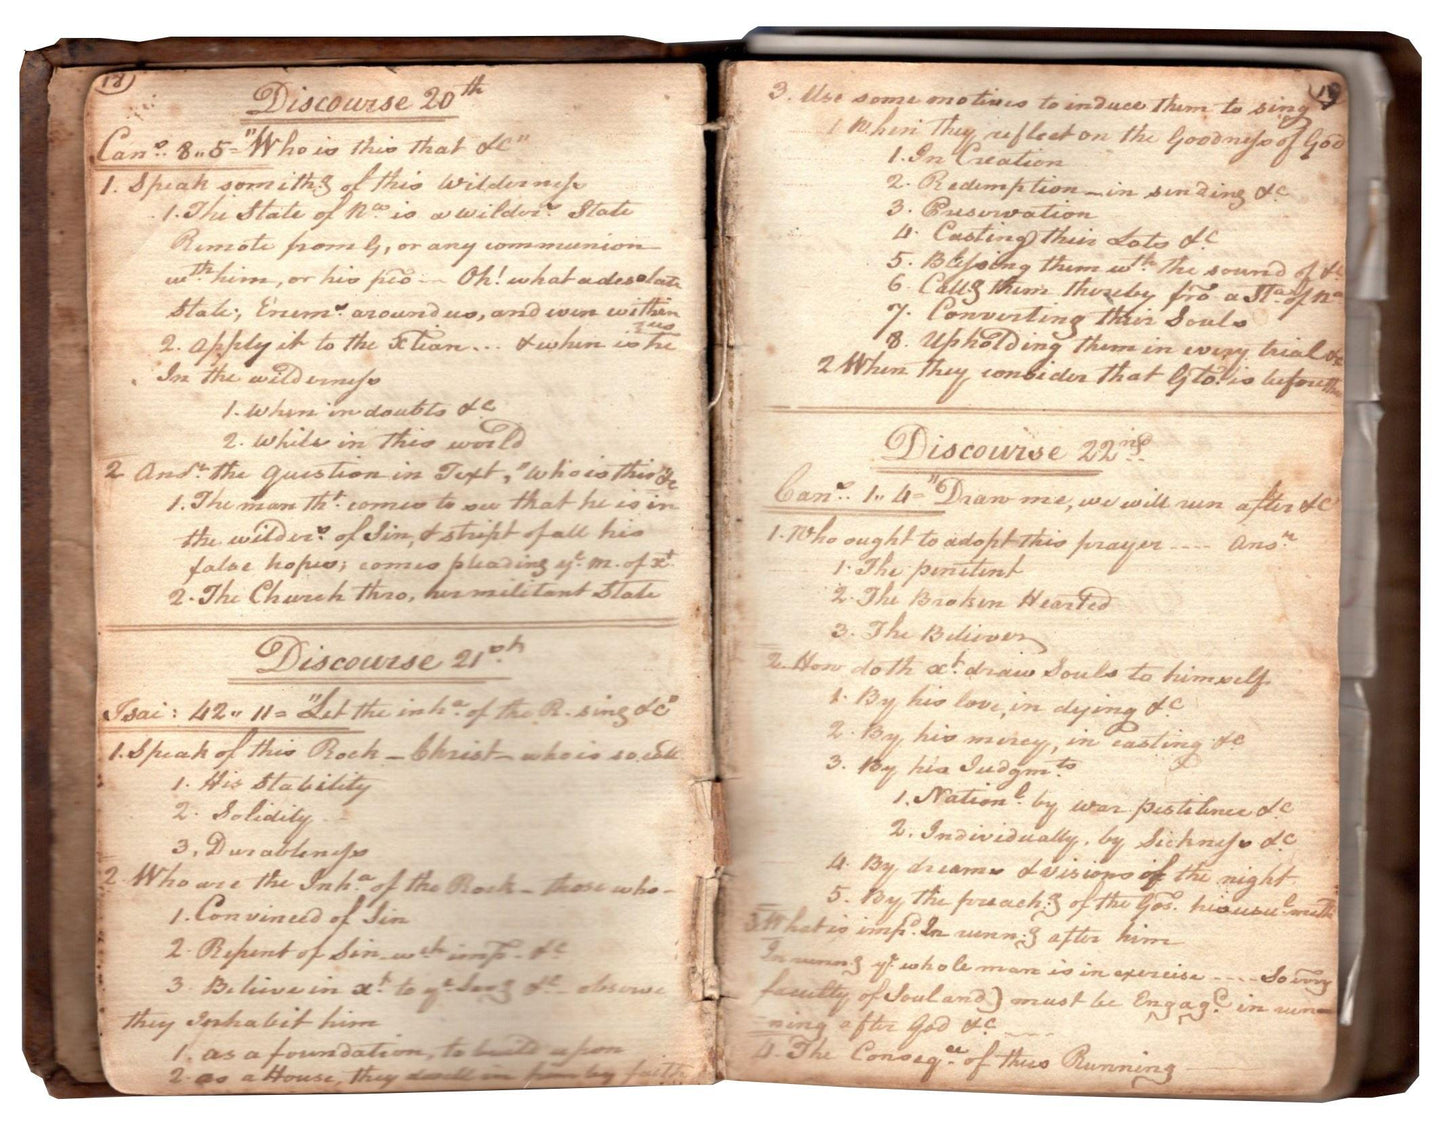 18
Discourse 20th
Can.s 8,,5= "Who is this that &c"
1. Speak someith:g of this Wilderness
1. The State of Na is a wilder.s State
Remote from G, or any communion
wth him, or his peo -- Oh! what a desolate
State, Enem.s around us, and even within
us
2. apply it to the Xtian ... & when is he
In the wilderness
1. when in doubts &c
2. While in this world
2 Ans.r the question in Text, "who is this &c"
1. The man tht comes to see that he is in
the wilder.s of Sin, & stript of all his
false hopes, comes pleading ye m. of xt
2. The Church thro, her militant State
Discourse 21st
Isai: 42,, 11= "Let the inha. of the R. sing &c"
1. Speak of this Rock - Christ - who is so call
1. His Stability
2. Solidity
3. Durableness
2. Who are the Inha. of the Rock - those who -
1. Convinced of Sin
2. Repent of Sin - wch imp. &c
3. Believe in xt to ye Sav:g &c - observe
they Inhabit him
1. as a foundation, to build upon
2. as a House, they dwell in him by faith
19
3. Use some motives to induce them to sing
1 When they reflect on the Goodness of God
1. In Creation
2. Redemption - in sending &c
3. Preservation
4. Casting their Lots &c
5. Blessing them wth the sound of &c
6. Call:g them thereby fro a Sta. of Na
7. Converting their Souls
8. Upholding them in every trial &c
2 When they consider that is before
Discourse 22nd
Can.s 1,, 4= "Draw me, we will run after &c"
1. Who ought to adopt this prayer ---- Ans.r
1. The penitent
2. The Broken Hearted
3. The Believer
2. How doth xt draw Souls to himself
1. By his love, in dying &c
2. By his mercy, in casting &c
3. By his Judgm.ts
1. Nation.l by war pestilence &c
2. Individually, by Sickness &c
4. By dreams & visions of the night
5. By the preach:g of the Gos. his usu.l meth
3. What is imp.d In runn:g after him
In runn:g ye whole man is in exercise ---- So every
faculty of Soul and) must be Engag.d in run=
=ning after God &c ----
4. The Conseq.ce of thus Running ----